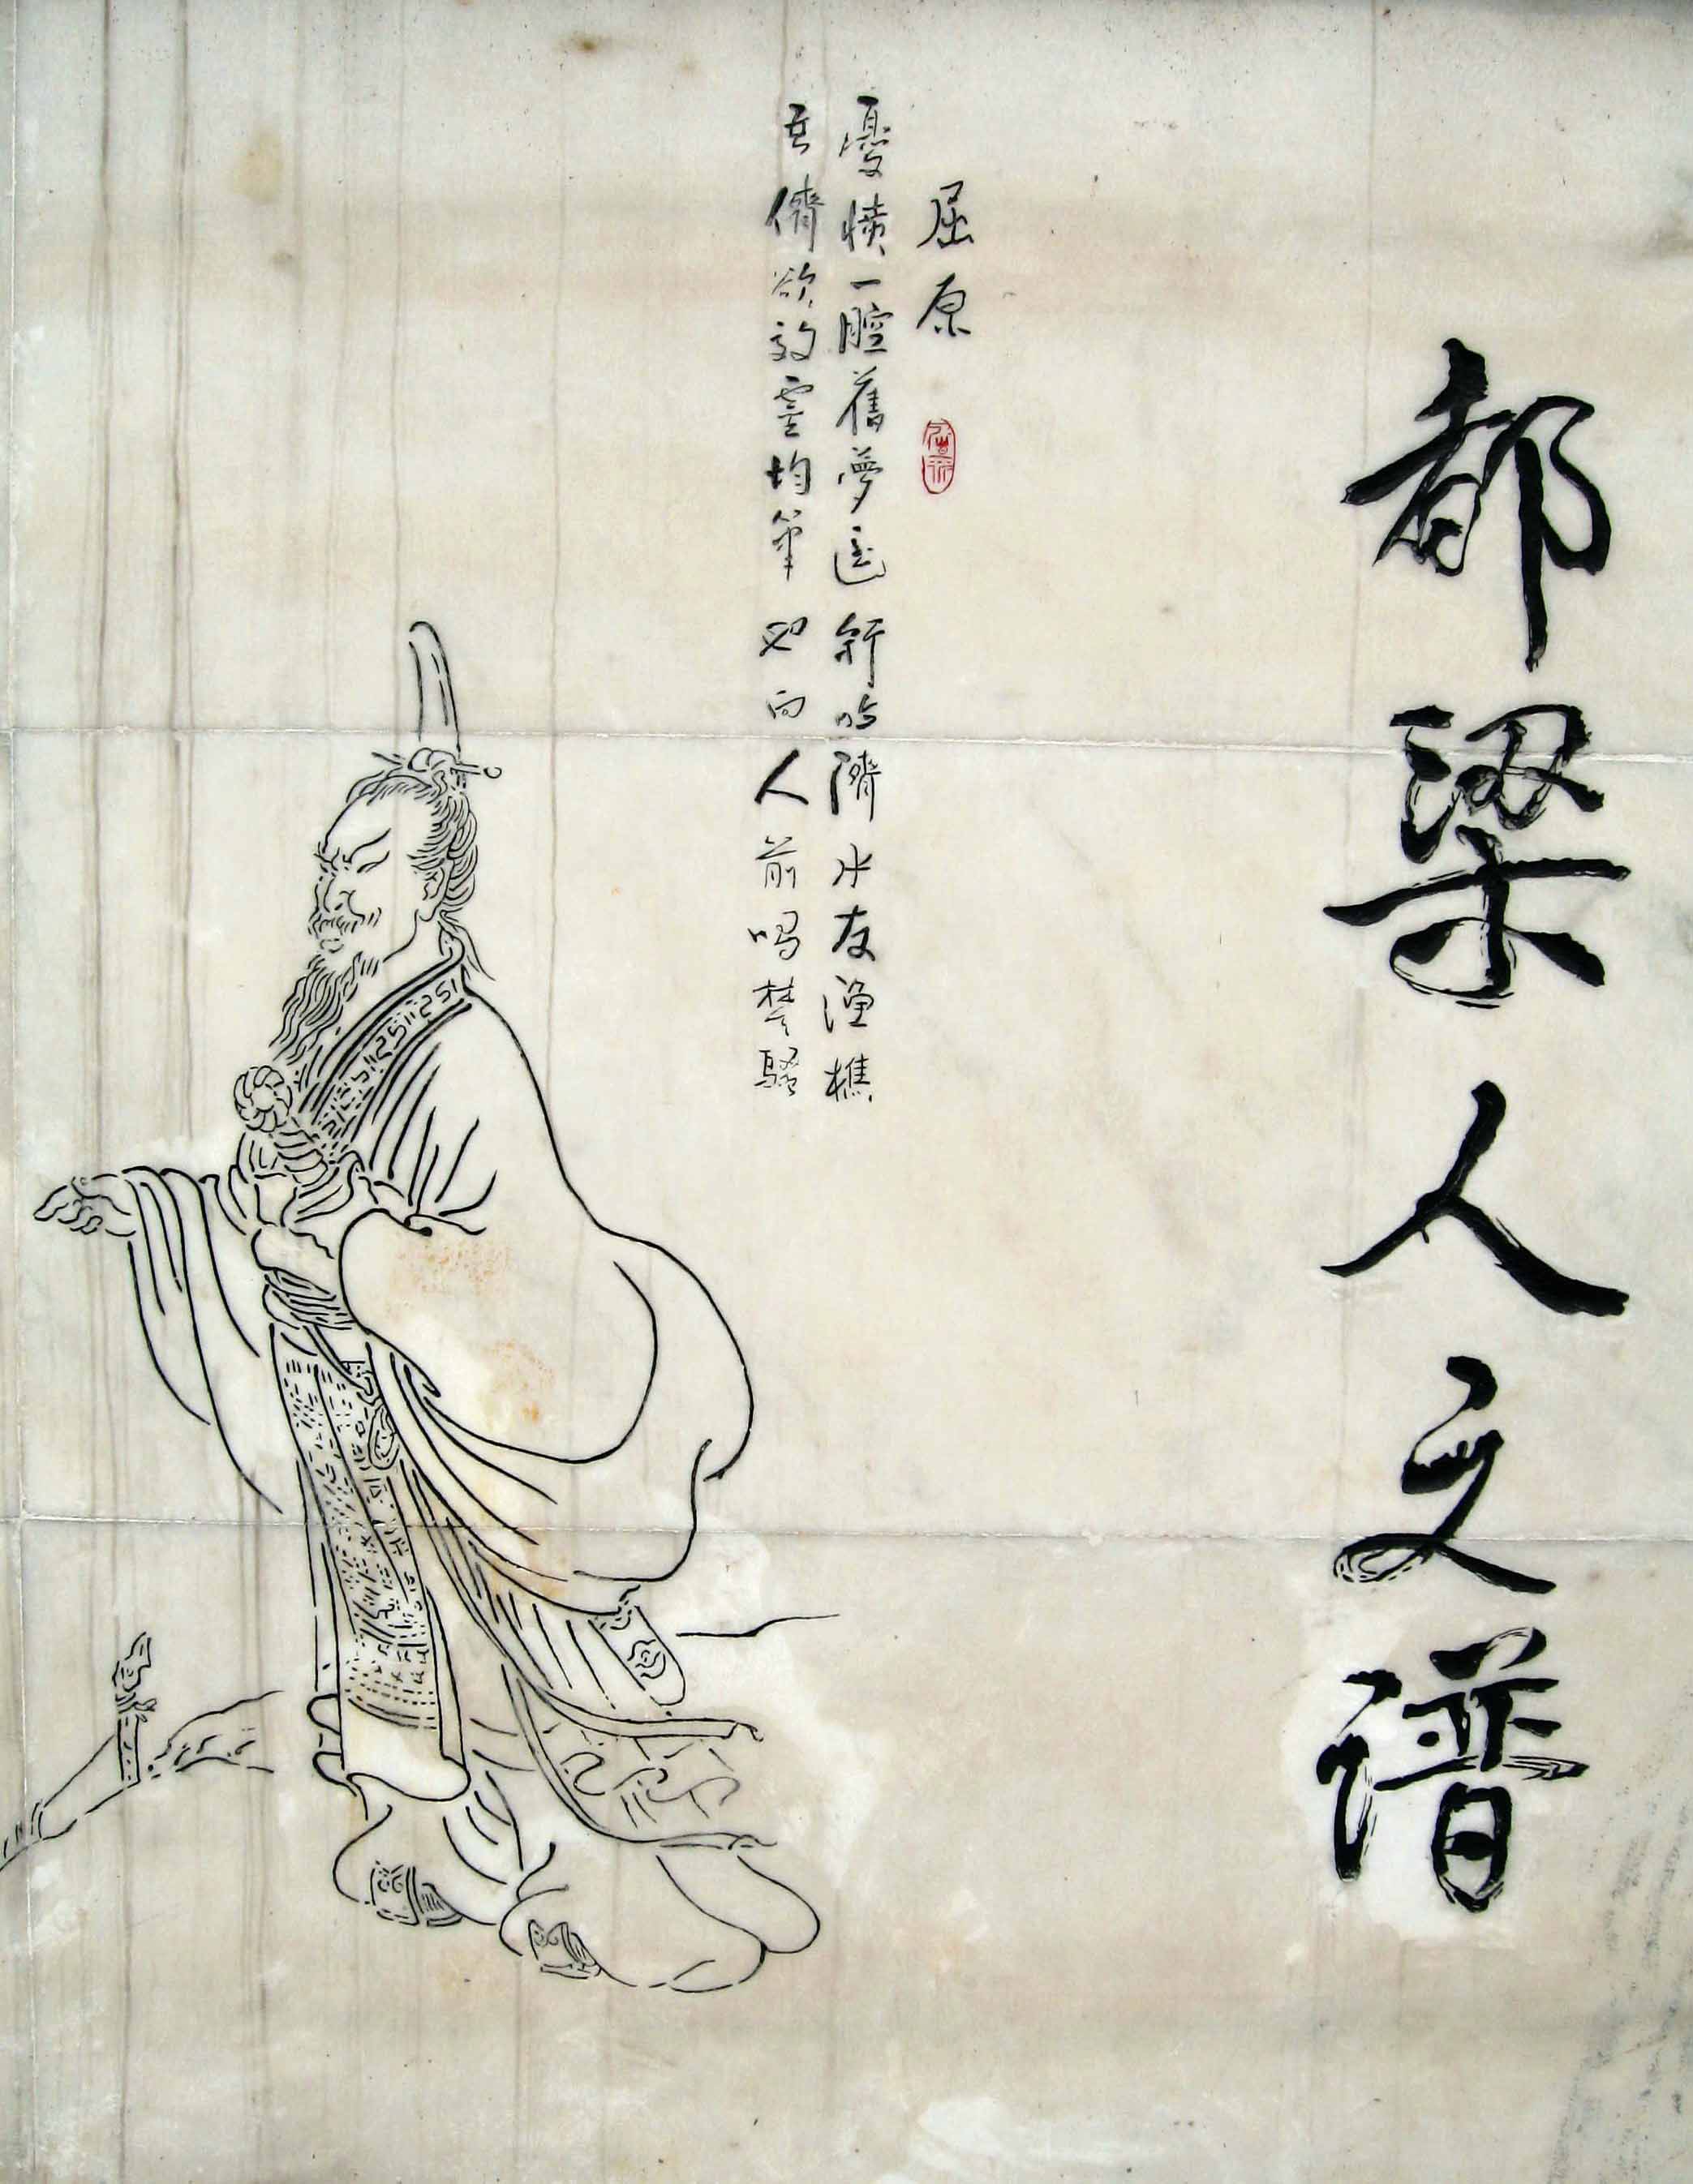 都梁人文谱
屈原
憂憤一腔舊夢遥新吟濟水友漁樵
吾儕欲效靈均筆也向人前唱楚騷